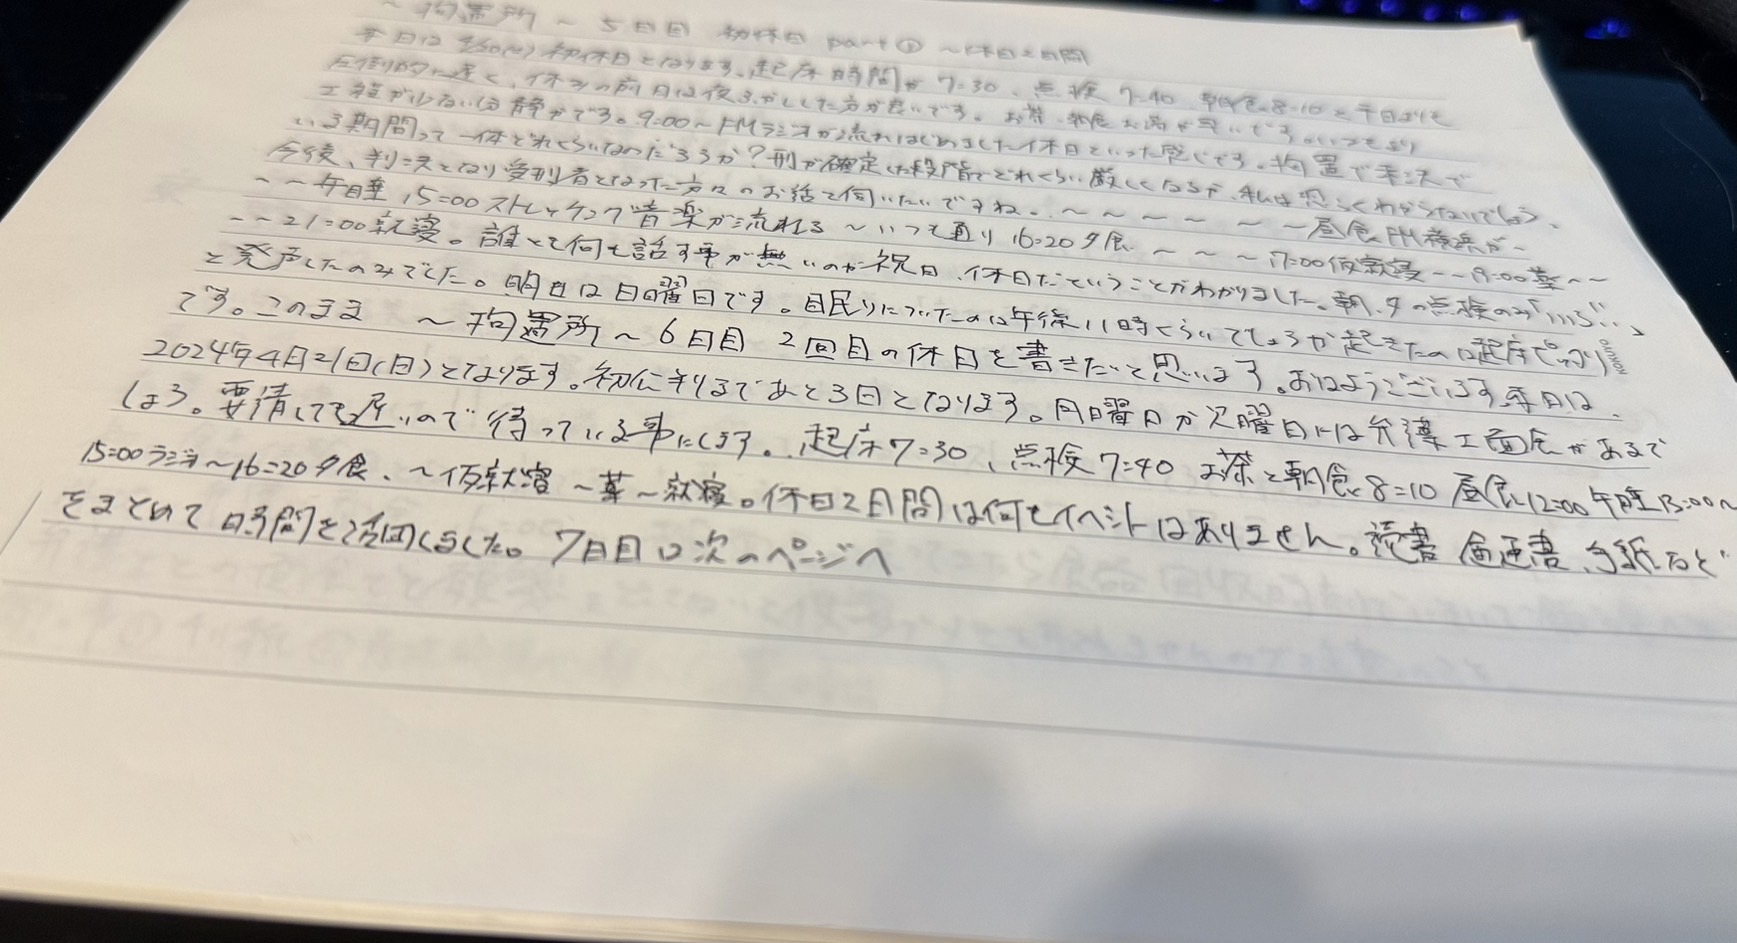 ～拘置所～ 5日目 初休日 part① ～休日2日間
本日は 4/20(土) 初休日となります。起床時間が 7:30、点検 7:40 朝食8:10と平日よりも
圧倒的に遅く、休みの前日は夜ふかしした方が良いです。お茶、朝食お湯が早いです。いつもより
工程が少ない分静かです。9:00～FMラジオが流れはじめました休日といった感じです。拘置で未決で
いる期間って一体どれくらいなのだろうか？刑が確定した段階でどれくらい厳しくなるか、私は恐らくわからないでしょう、
今後、判決となり受刑者となった方々のお話を伺いたいですね。～～～～～～～昼食、FM 
～～午睡 15:00ストレッチング音楽が流れる～いつも通り 16:20夕食～～～～17:00仮就寝～～19:00薬～～
～～21:00就寝。誰とも何も話す事が無いのが祝日、休日だということがわかりました。朝、夕の点検のみ
と発声したのみでした。明日は日曜日です。眠りについたのは午後11時くらいでしょうか起きたのは起床ぴったり
です。このまま ～拘置所～6日目 2回目の休日を書きたいと思います。おはようございます、本日は、
2024年4月21日(日)となります。初公判まであと3日となります。月曜日か火曜日には弁護士面会があるで
しょう。要請しても遅いので待っている事にします。起床7:30、点検7:40 お茶と朝食、8:10 昼食、12:00 午睡13:00～
15:00ラジオ～16:20夕食、～仮就寝～薬～就寝。休日2日間は何もイベントはありません。読書 手紙など
をまとめて時間を潰しました。7日目は次のページへ